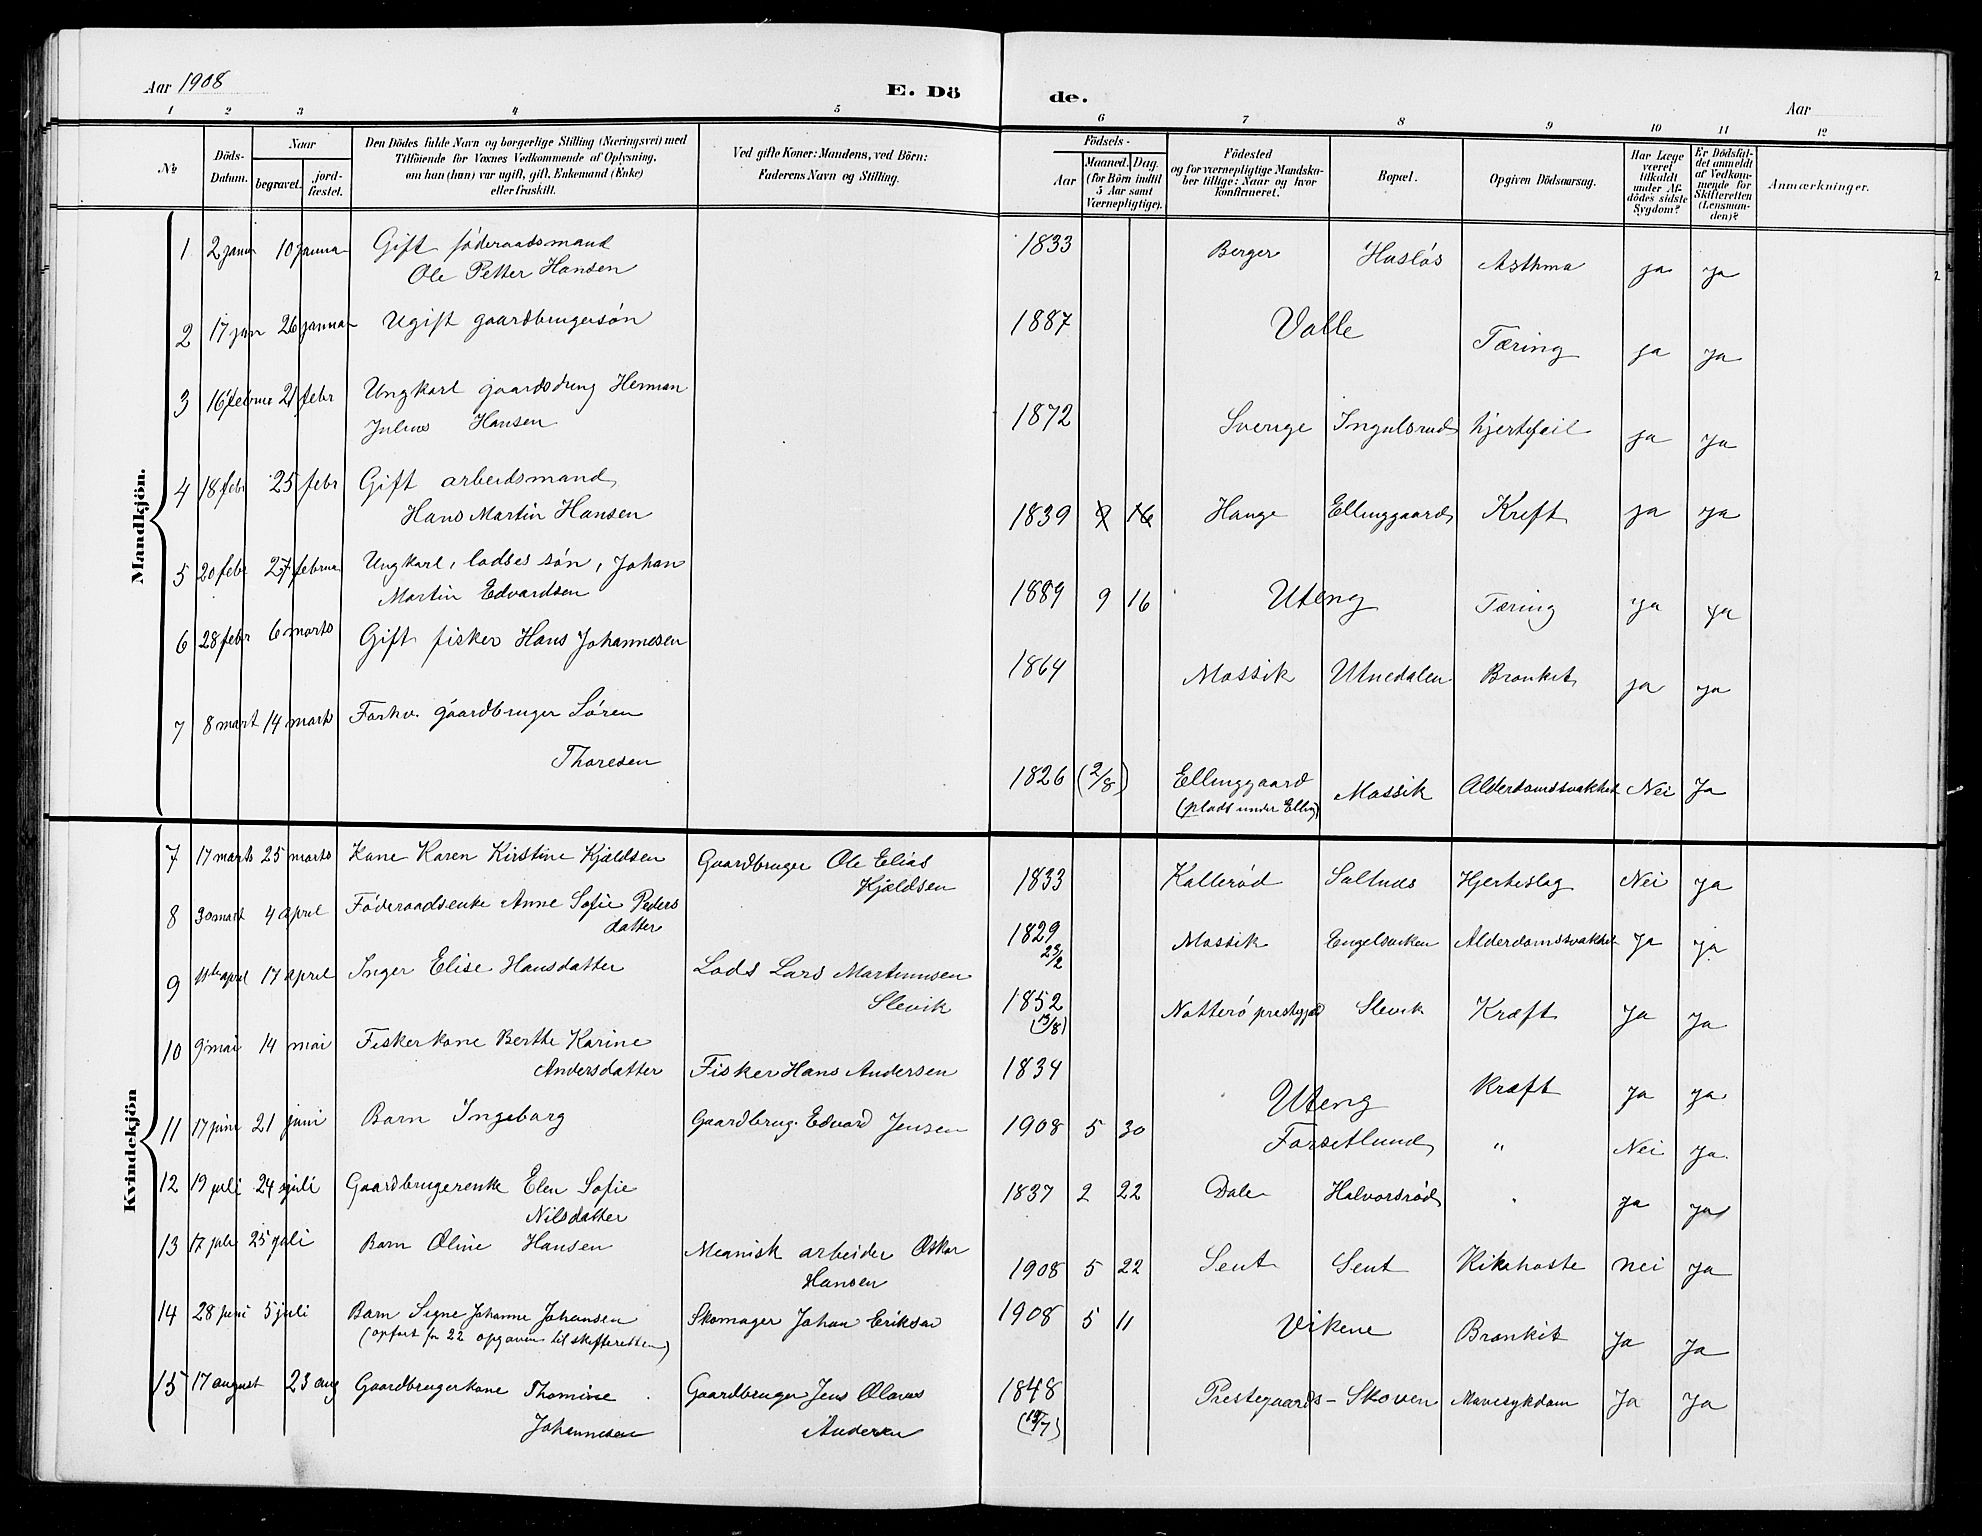 Aar 1908
E. Dö de.
Aar
1 2 3 4 5 6 7 8 9 10 11 12
No
Döds-Datum.
Naar
begravet.
jord-fæstet.
Den Dödes fulde Navn og borgerlige Stilling (Næringsvei) med
Tilföiende for Voxnes Vedkommende af Oplysning,
om han (hun) var ugift, gift, Enkemand (Enke)
eller fraskilt.
Ved gifte Koner: Mandens, ved Börn:
Faderens Navn og Stilling.
Födsels-
Aar
Maaned. Dag.
(for Börn indtil
5 Aar samt
Værnepligtige).
Födested
og for værnepligtige Mandska-
ber tillige: Naar og hvor
konfirmeret.
Bopæl.
Opgiven Dödsaarsag.
Har Læge
været
tilkaldt
under Af-
dödes sidste
Sygdom?
Er Dödsfal-
det anmeldt
af Vedkom-
mende for
Skifteretten
(Lensman-
den)?
Anmærkninger.
Mandkjön.
1 2 janu 10 janua Gift föderaadsmand
Ole Petter Hansen 1833 Berger Hasløs Asthma ja ja
2 17 jan 26 januar Ugift gaardbrugersøn 1887 Valle Tæring ja ja
3 16 februa 21 febr Ungkarl gaardsdreng Herman
Julius Hansen 1872 Sverige Ingulsrud hjertefeil ja ja
4 18 febr 25 febr Gift arbeidsmand
Hans Martin Hansen 1839 9 16 Hauge Ellinggaard Kreft ja ja
5 20 febr 27 februa Ungkarl, lodses søn, Johan
Martin Edvardsen 1889 9 16 Uteng Tæring ja ja
6 28 febr 6 marts Gift fisker Hans Johannesen
1864 Mossik Utnedalen Bronkit ja ja
7 8 mart 14 marts Forhv. gaardbruger Søren
Thoresen 1826 (2/8) Ellinggaard
(plads under Elling) Mossik Alderdomssvakhet Nei Ja
Kvindekjön
7 17 marts 25 marts Kone Karen Kirstine Kjældsen Gaardbruger Ole Elias
Kjældsen 1833 Kallerød Saltnes Hjerteslag Nei ja
8 30 mart 4 april Föderaadsenke Anne Sofie Peders
datter 1829 23/2 Mossik Engelsviken Alderdomssvakhet ja ja
9 11te april 17 april Inger Elise Hansdatter Lods Lars Martinusen
Slevik 1852 (13/8) Notterö prestgjæld Slevik Kræft Ja Ja
10 9 mai 14 mai Fiskerkone Berthe Karine
Andersdatter Fisker Hans Andersen 1834 Uteng Kræft Ja ja
11 17 juni 21 juni Barn Ingeborg Gaardbrug. Edvard Jensen 1908 5 30 Forsetlund " Nei ja
12 19 juli 24 juli Gaardbrugerenke Elen Sofie
Nilsdatter 1837 2 22 Dale Halvorsrød " ja ja
13 17 juli 25 juli Barn Oline Hansen Meanisk arbeider Oskar
Hansen 1908 5 22 Sent Sent Kikhoste nei ja
14 28 juni 5 juli Barn Signe Johanne Johansen Skomager Johan Eriksen 1908 5 11 Vikene Bronkit Ja Ja
(opført for 22 opgaven til skifteretten)
15 17 august 23 aug Gaardbrugerkone Thomine
Johannesen Gaardbruger Jens Olaves
Andersen 1848 (13/7) Prestegaards-Skoven Mavesykdom Ja Ja